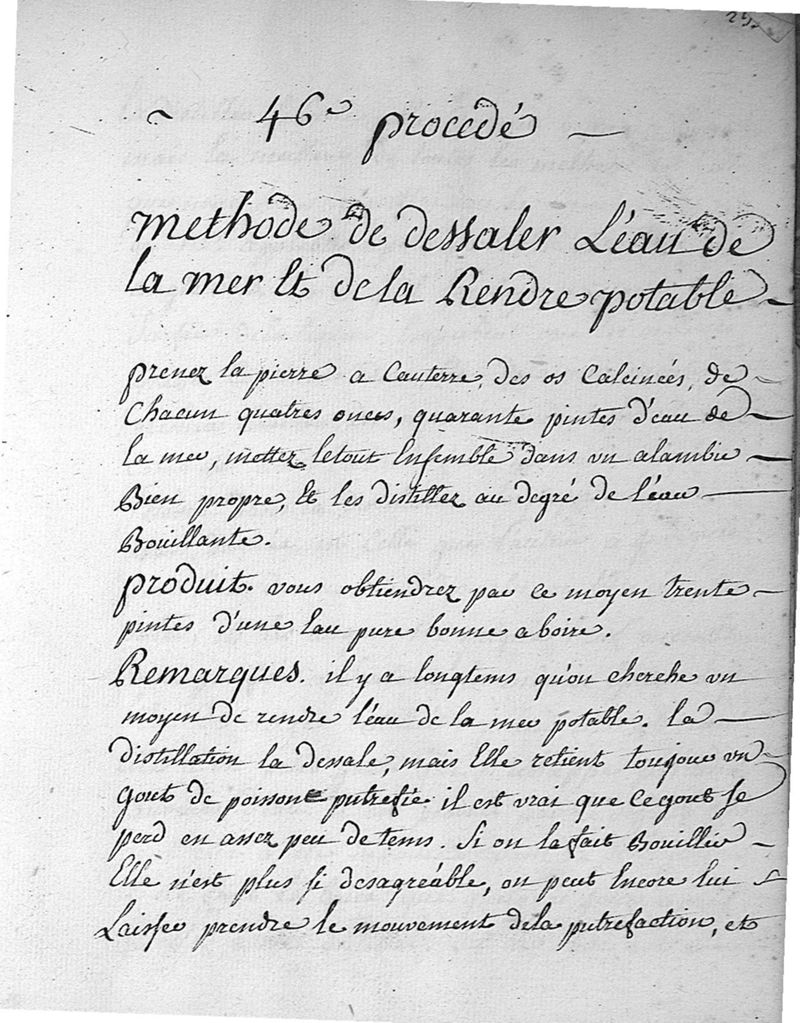 46e procedé
methode de dessaler L'éau de
la mer Et de la Rendre potable
prenez la pierre a Cauterre, des os Calcinées, de
Chacun quatres onces, quarante pintes d'eau de
la mer, mettez letout Ensemble dans un alambic
Bien propre, Et les distillez au degré de l'éau
Bouillante.
produit. vous obtiendrez par ce moyen trente
pintes d'une Eau pure bonne a boire.
Remarques. il y a longtems qu'on cherche un
moyen de rendre l'éau de la mer potable. la
distillation la dessale, mais Elle retient toujour un
gout de poisson putrefie il est vrai que ce gout se
perd en assez peu de tems. Si on la fait Bouillir
Elle n'est plus si desagréable, on peut Encore lui
Laisser prendre le mouvement dela putrefaction, et